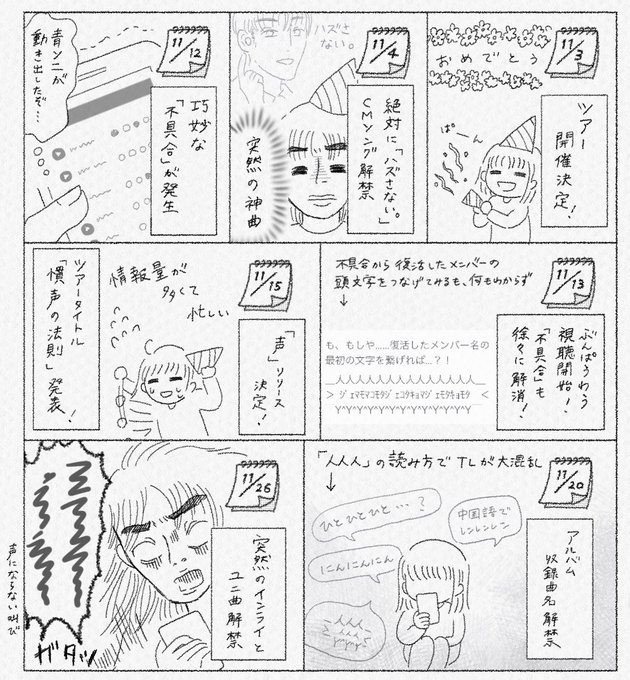 11/3
おめでとう
ツアー
開催決定！
ぱーん
11/4
ハズさ
ない。
絶対に「ハズさない。」
CMソング解禁
突然の神曲
11/12
青ンニが
動き出したぞ…
巧妙な
「不具合」が発生
11/13
不具合から復活したメンバーの
頭文字をつなげてみるも、何もわからず
↓
ぶんぱうわう
視聴開始！
「不具合」も
徐々に解消！
も、もしや……復活したメンバー名の
最初の文字を繋げれば…？！
＿人人人人人人人人人人人人人人＿
＞ ｼﾞｪﾏﾓﾏｺﾏﾀｼﾞｪｺﾀｷｮﾏｼﾞｪﾓﾀｷｮﾓﾀ ＜
￣Y^Y^Y^Y^Y^Y^Y^Y^Y^Y￣
11/15
情報量が
多くて
忙しい
「声」リリース
決定！
ツアータイトル
「慣声の法則」発表！
11/20
「人人人」の読み方でTLが大混乱
↓
アルバム
収録曲名解禁
ひとひとひと…？
中国語で
レンレンレン
にんにんにん
人人人
YYY
11/26
突然のインライと
ユニ曲解禁
声にならない叫び
ガタッ